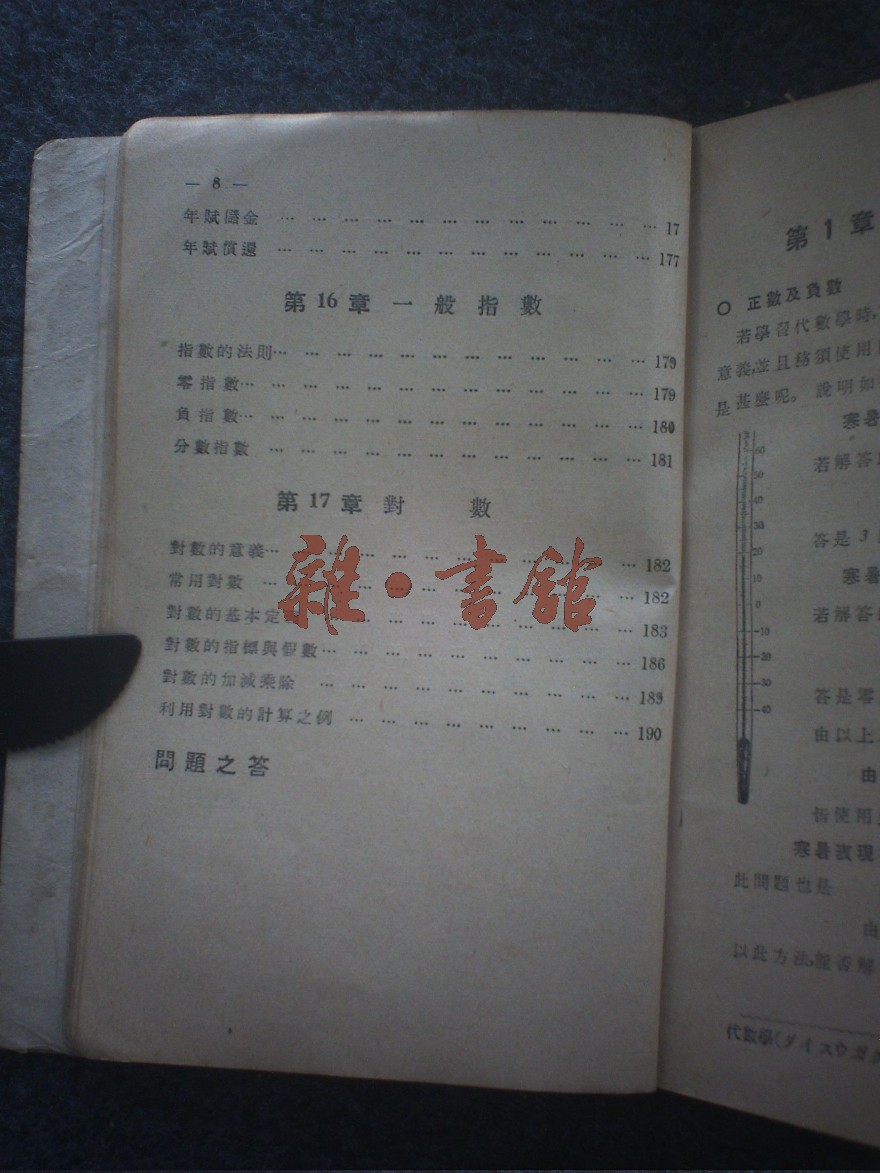 — 8 —
年賦儲金 … … … … … … … … … … … … 17
年賦償還 … … … … … … … … … … … … 177
第16章 一般指數
指數的法則… … … … … … … … … … … … 179
零指數… … … … … … … … … … … … … 179
負指數… … … … … … … … … … … … … 180
分數指數 … … … … … … … … … … … … 181
第17章 對數
對數的意義… … … … … … … … … … … … 182
常用對數 … … … … … … … … … … … … 182
對數的基本定 … … … … … … … … … … 183
對數的指標與假數… … … … … … … … … … 186
對數的加減乘除 … … … … … … … … … … 189
利用對數的計算之例 … … … … … … … … … 190
問題之答
雜·書館
第1章
○ 正數及負數
若學習代數學時,
意義,並且務須使用
是甚麼呢。說明如
寒暑
若解答
60
50
40
30
20
10
0
-10
-20
-30
-40
答是3
寒暑
若解答
答是零
由以上
由
皆使用
寒暑表現
此問題也是
由
以此方法,能否解
代數學(ダイスウガク